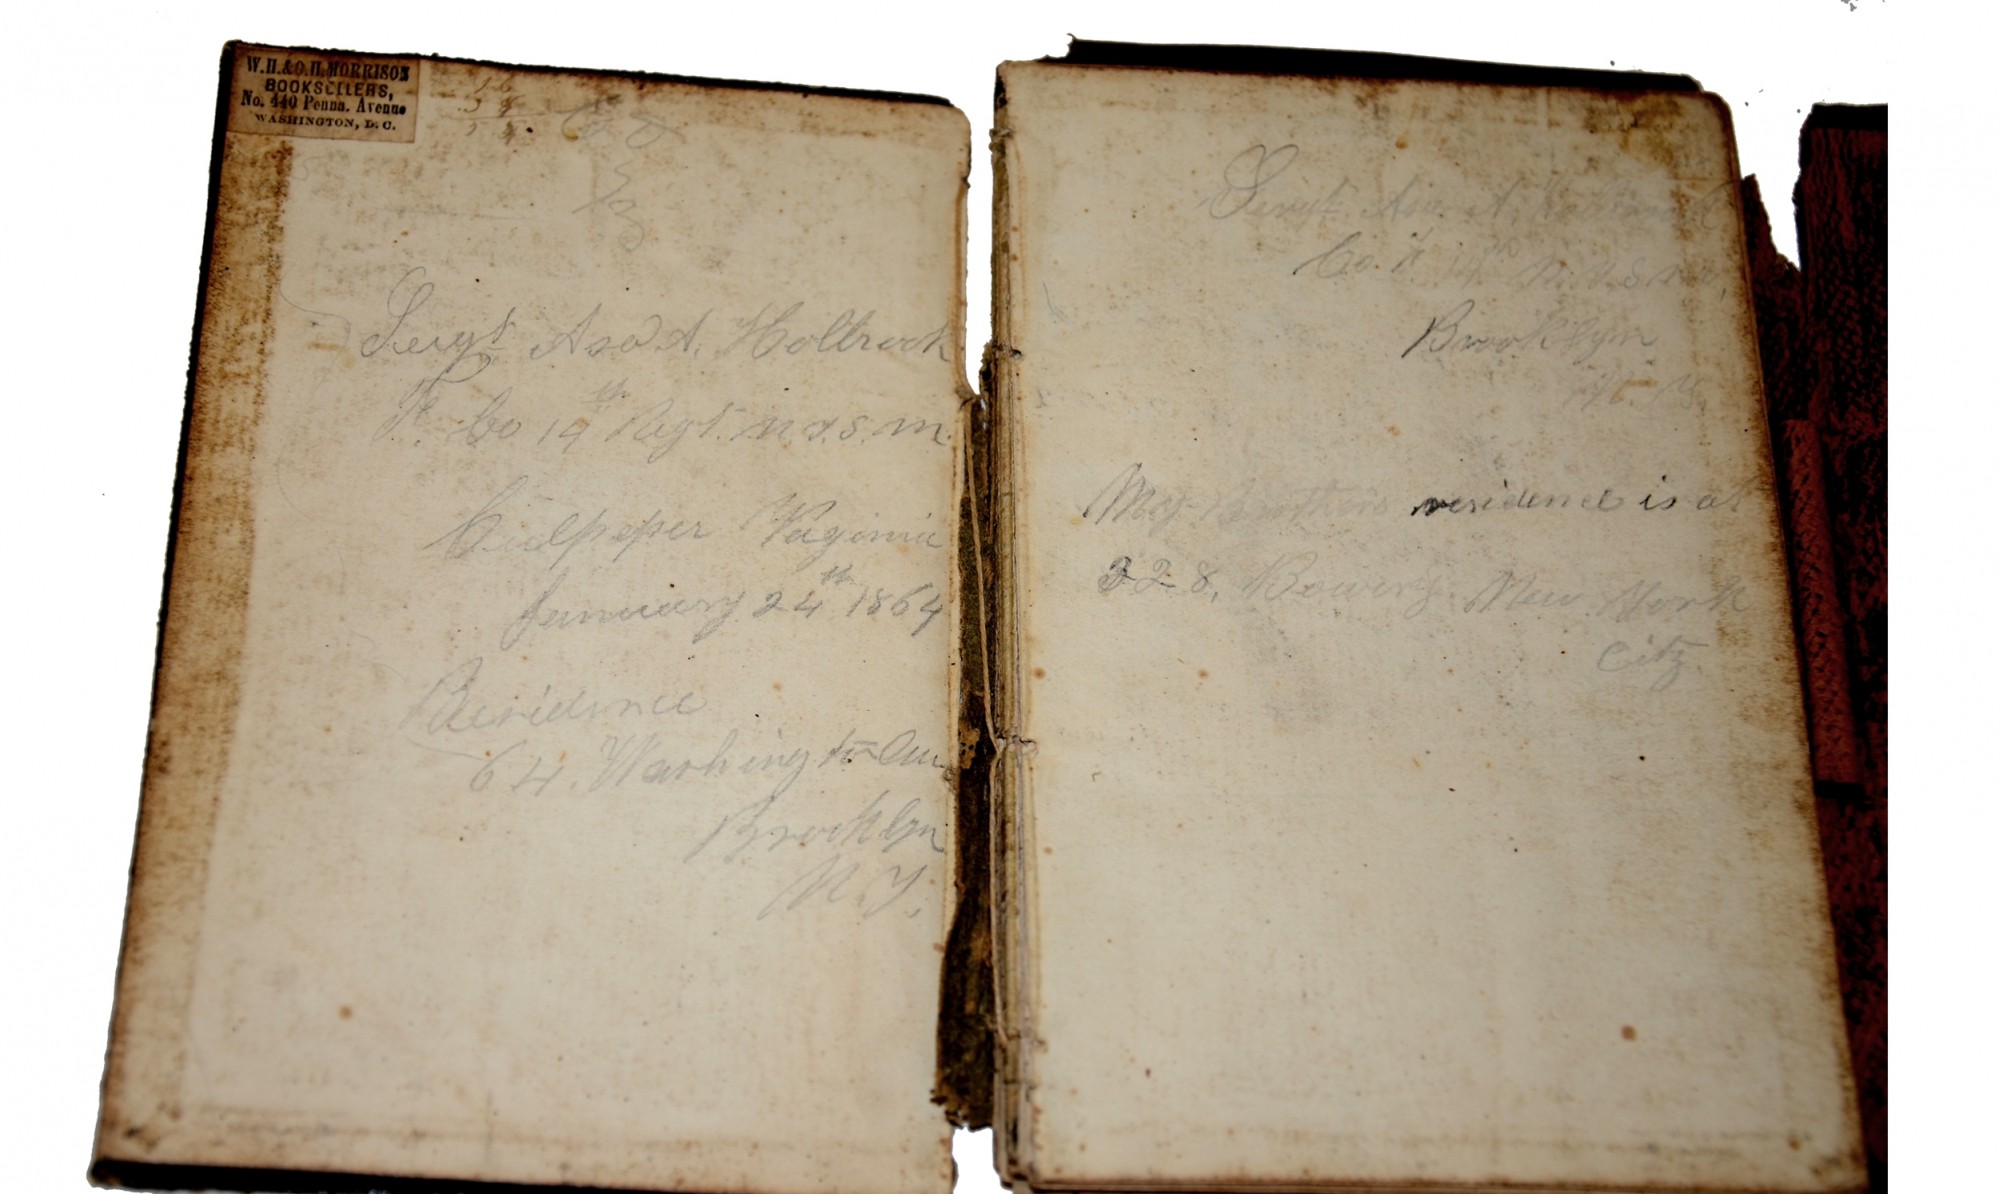 W.H. & O.H. MORRISON
BOOKSELLERS,
No. 440 Penna. Avenue
WASHINGTON, D. C.
Sergt Asa A. Holbrook
F. Co 14th Regt. N.Y.S.M.
Culpeper Vaginia
January 24th 1864
Residence
64. Washington Av
Brooklyn
N.Y.
Sergt. Asa A. Holbrook
Co. 14th N.Y.S.M.,
Brooklyn
N.Y.
My Brothers residence is at
328, Bowery New York
City